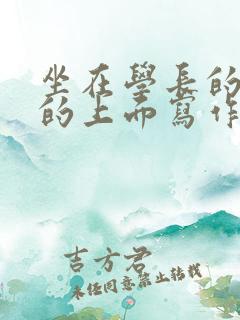 坐在學長的
的上面寫作
吉方君
未經同意禁止轉載